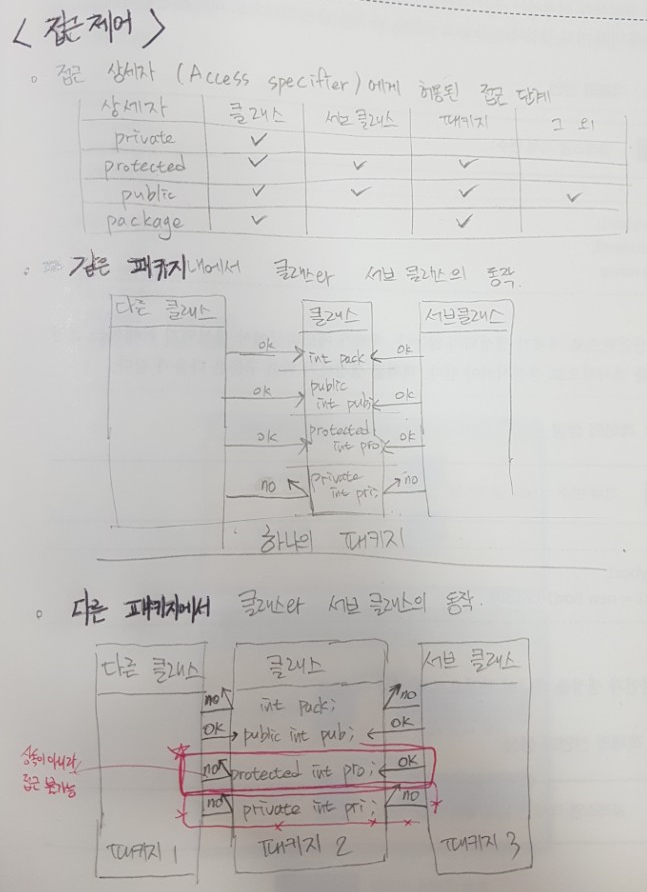 < 접근 제어 >
접근 상세자 (Access specifier)에게 허용된 접근 단계
상세자 클래스 서브클래스 패키지 그 외
private ✓
protected ✓ ✓ ✓
public ✓ ✓ ✓ ✓
package ✓ ✓
같은 패키지내에서 클래스와 서브 클래스의 동작.
다른 클래스 클래스 서브클래스
ok int pack ok
public
ok int pub; ok
protected
ok int pro ok
private
no int pri; no
하나의 패키지
다른 패키지에서 클래스와 서브 클래스의 동작.
다른 클래스 클래스 서브 클래스
no int pack; no
OK public int pub; OK
상속이 아니라
접근 불가능
no protected int pro; OK
no private int pri; no
패키지 1 패키지 2 패키지 3